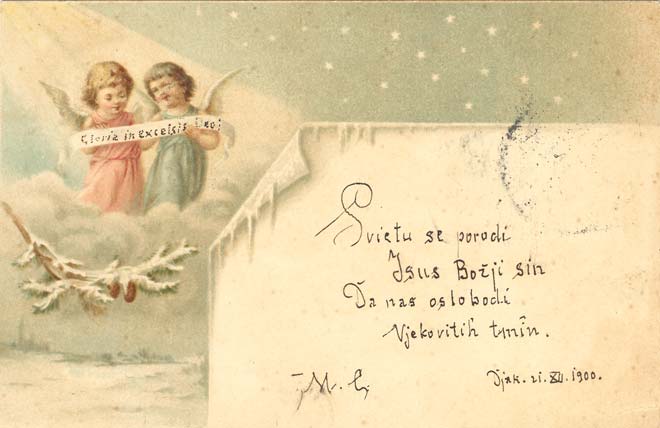 Gloria in Excelsis Deo!
Svietu se porodi
Isus Božji sin
Da nas oslobodi
Vjekovitih tmîn.
M. C.
Djak. 21. XII. 1900.